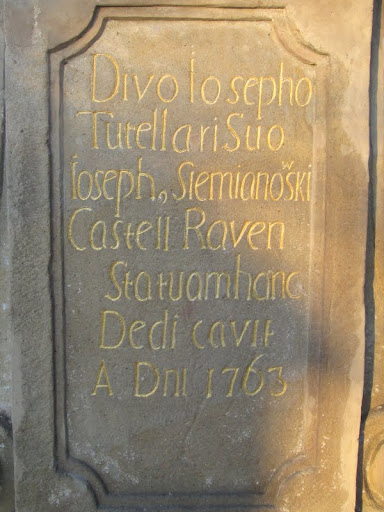 Divo Iosepho
Tutellari Suo
Ioseph, Siemianoški
Castell Raven
Statuam hanc
Dedicavit
A Dni 1763